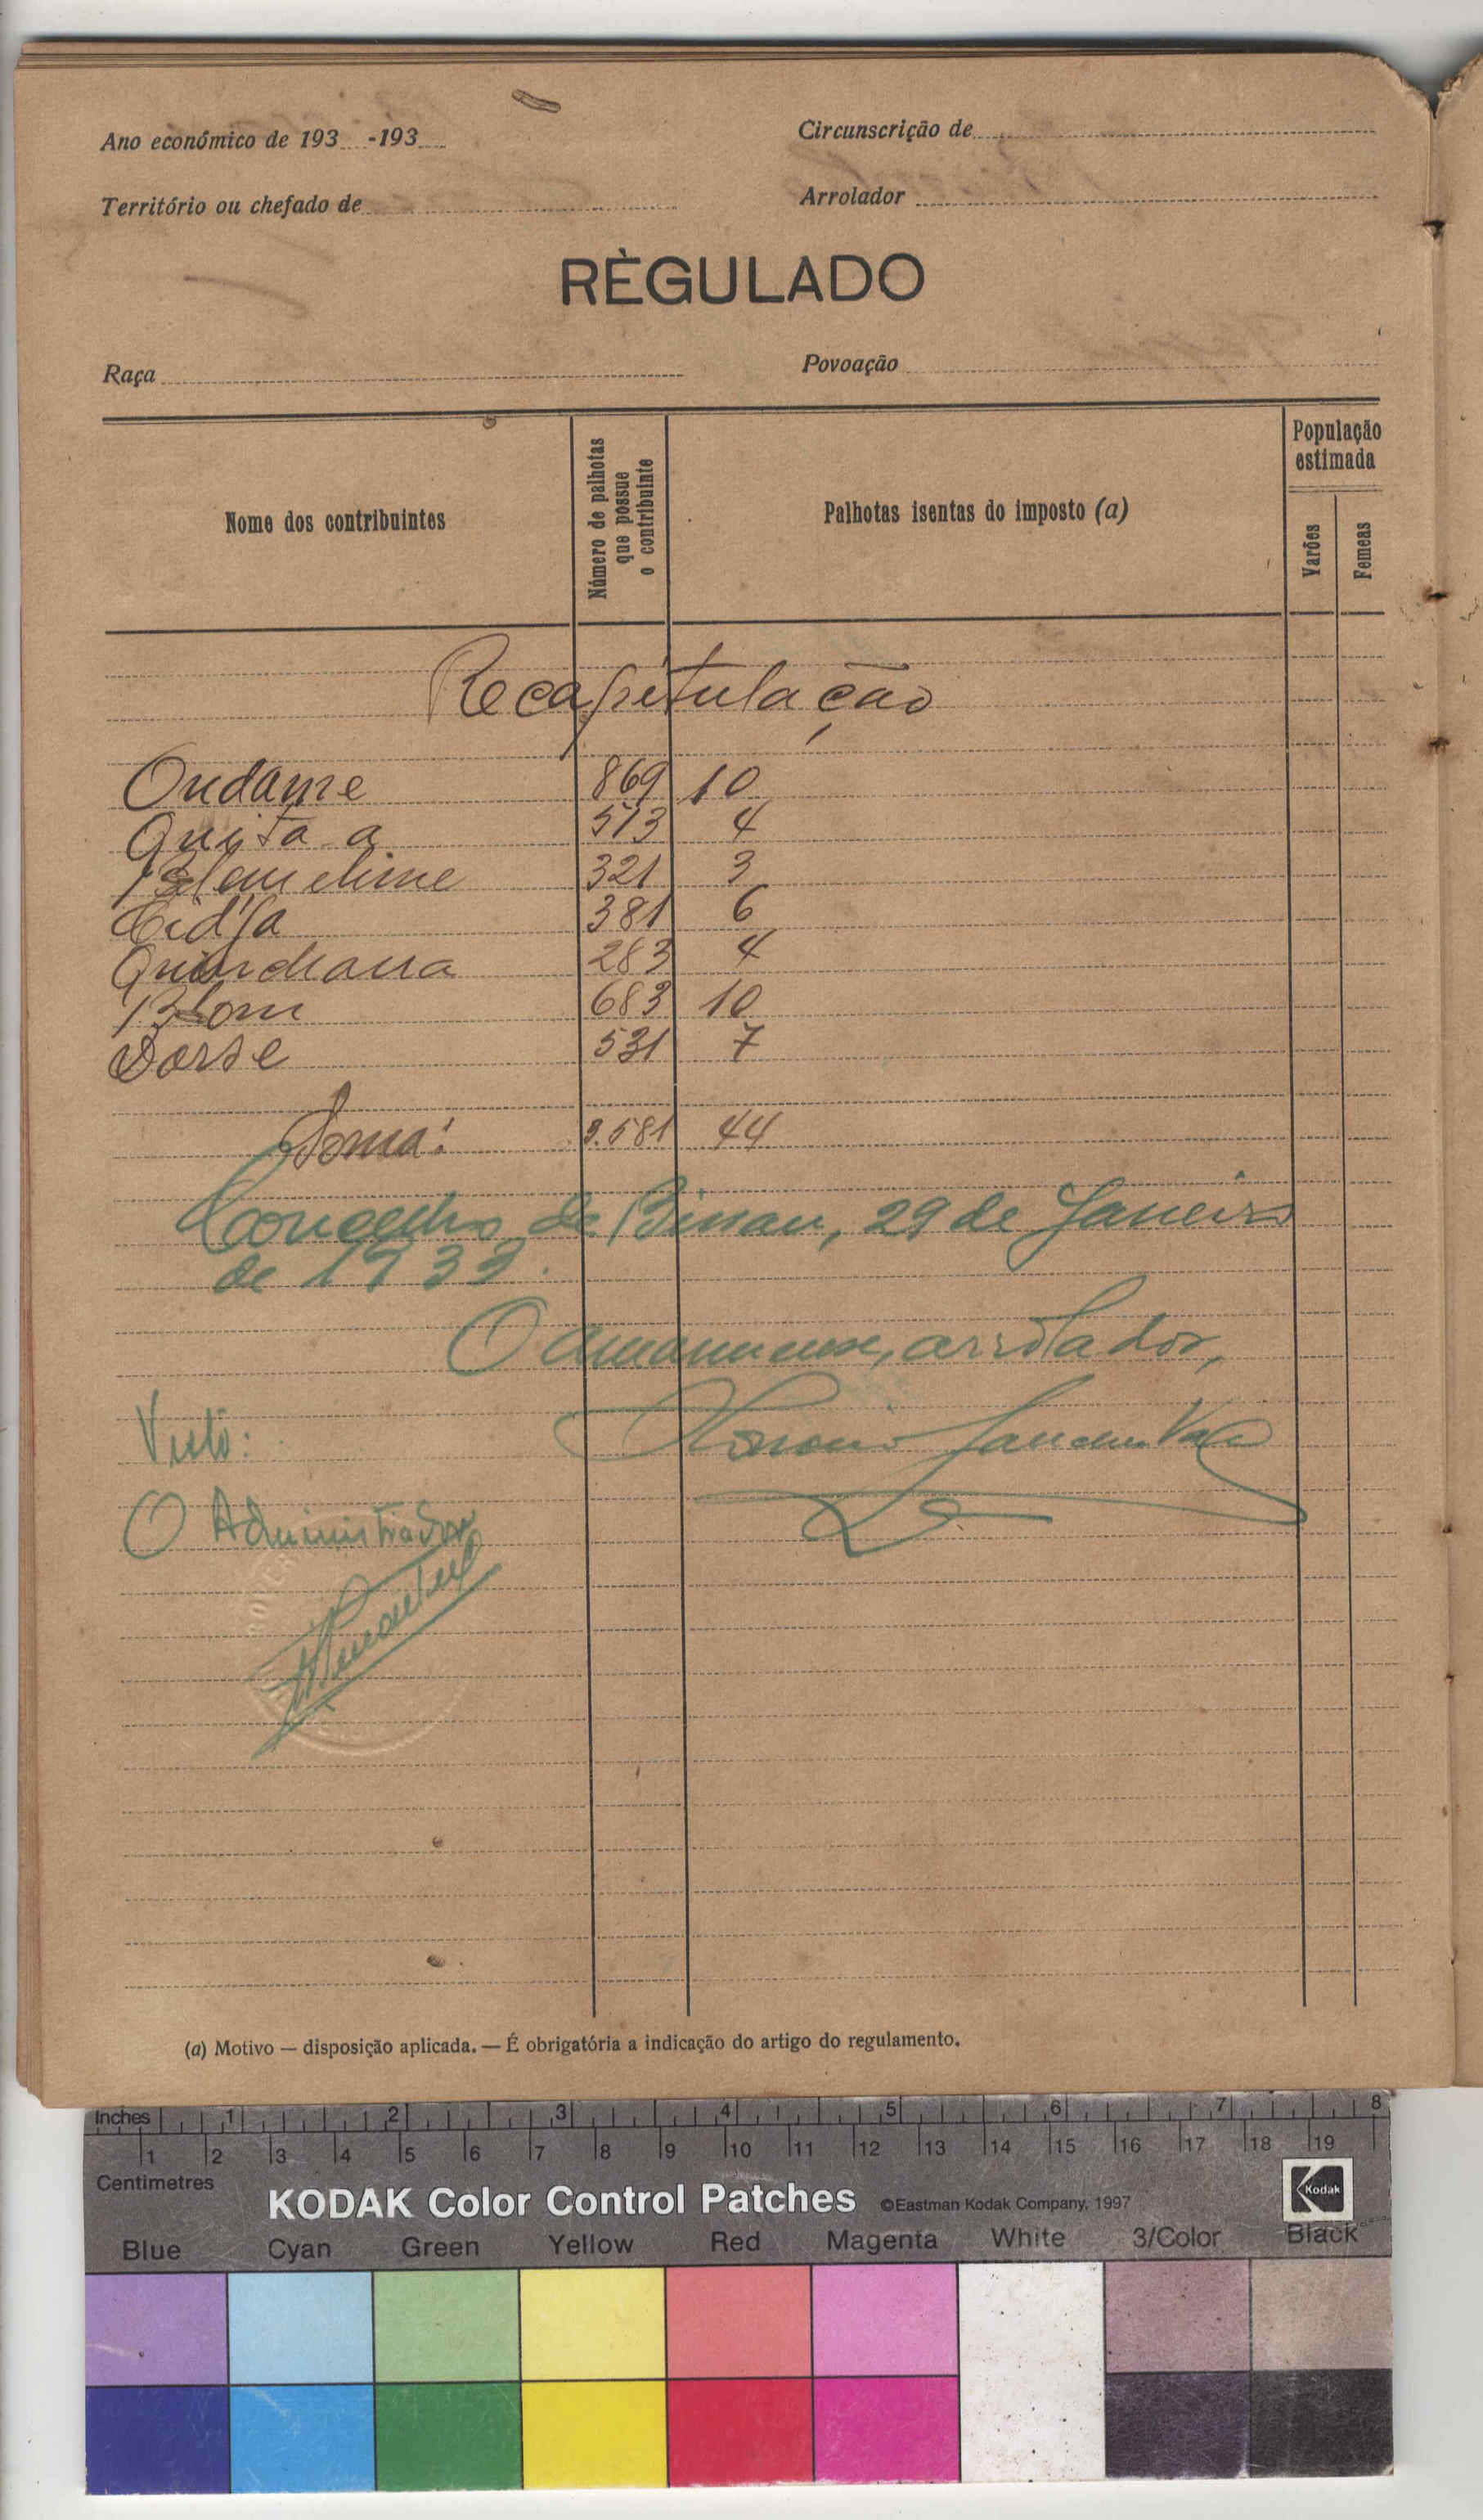 Ano económico de 193 -193
Circunscrição de
Território ou chefado de
Arrolador
RÈGULADO
Raça
Povoação
Nome dos contribuintes
Número de palhotas que possue o contribuinte
Palhotas isentas do imposto (a)
População estimada
Varões
Femeas
Recapitulação
Ondame 869 10
Quita a 513 4
321 3
381 6
283 4
Blom 683 10
Dorse 531 7
Soma: 3.581 44
Concelho de Bissau, 29 de Janeiro
de 1933.
O amanuense, arrolador,
Visto:
O Administrador
(a) Motivo — disposição aplicada. — É obrigatória a indicação do artigo do regulamento.
Inches 1 2 3 4 5 6 7 8
1 2 3 4 5 6 7 8 9 10 11 12 13 14 15 16 17 18 19
Centimetres
KODAK Color Control Patches ©Eastman Kodak Company, 1997 Kodak
Blue Cyan Green Yellow Red Magenta White 3/Color Black